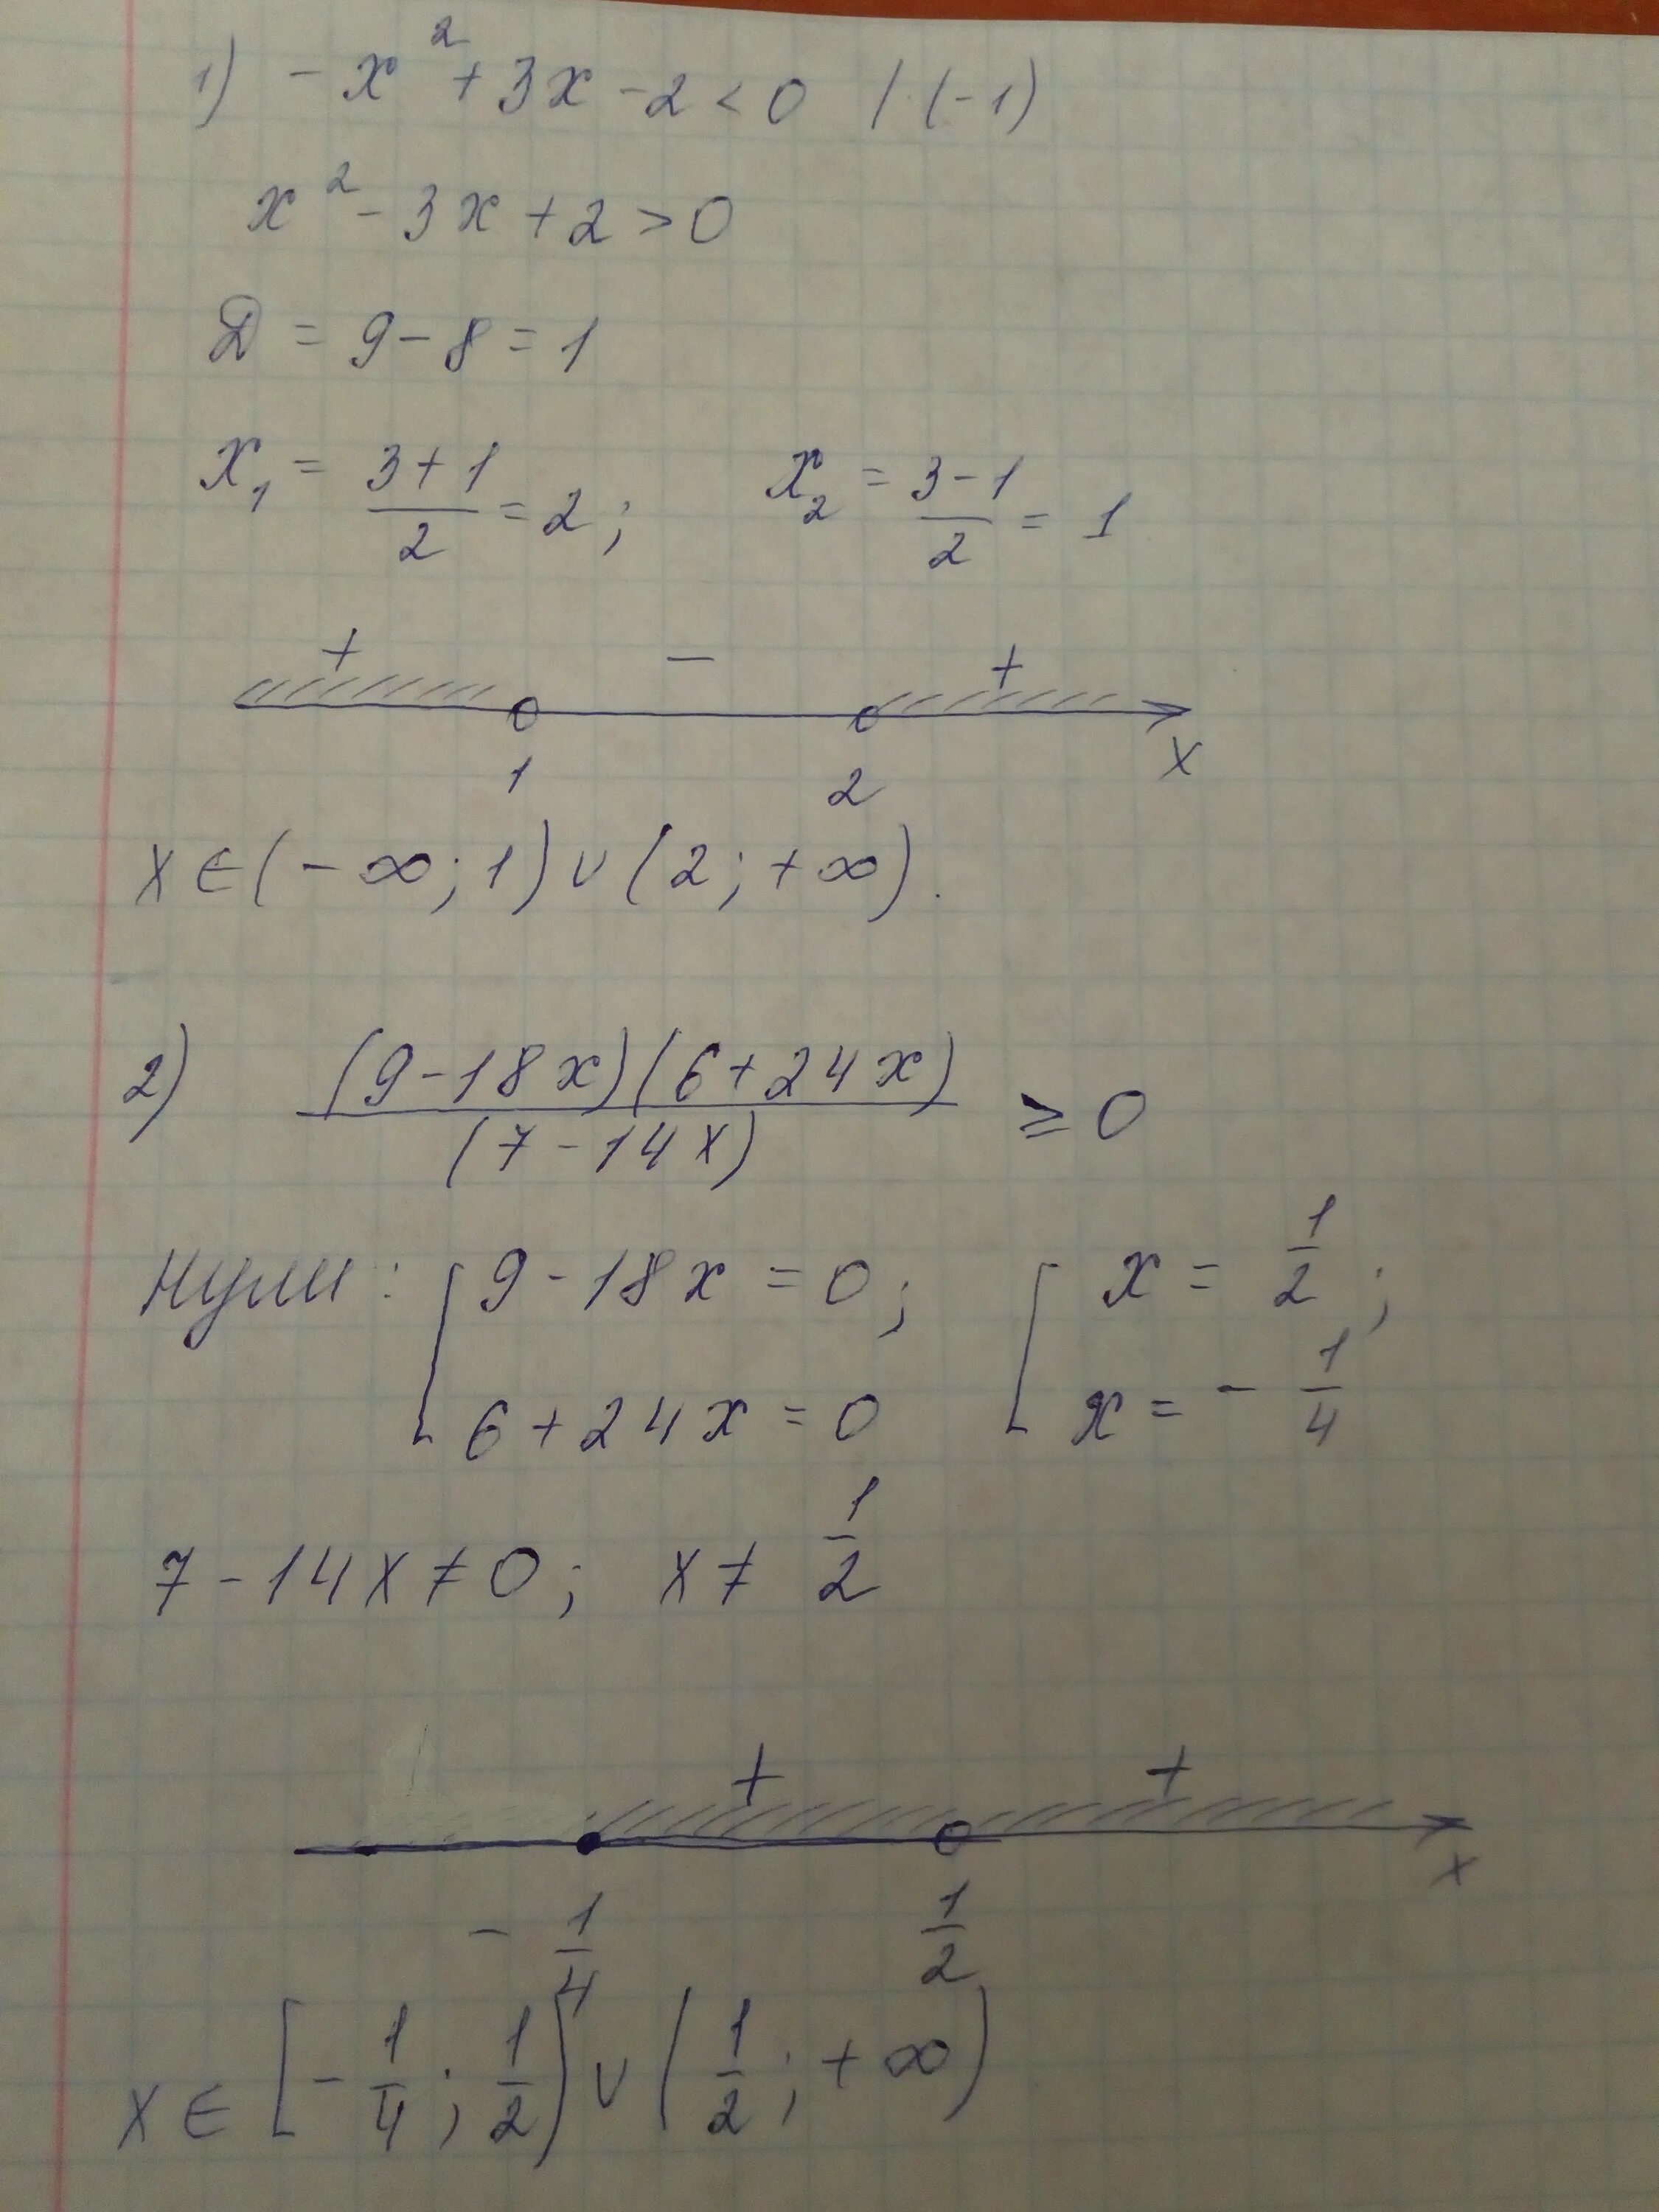 1) -x² + 3x - 2 < 0 | · (-1)
x² - 3x + 2 > 0
D = 9 - 8 = 1
x₁ = (3+1)/2 = 2; x₂ = (3-1)/2 = 1
+ - +
1 2 x
x ∈ (-∞; 1) ∪ (2; +∞).
2) (9-18x)(6+24x)/(7-14x) ≥ 0
Нули: [ 9-18x = 0; [ x = 1/2;
6+24x = 0 x = -1/4
7-14x ≠ 0; x ≠ 1/2
+ +
-1/4 1/2 x
x ∈ [-1/4; 1/2) ∪ (1/2; +∞)